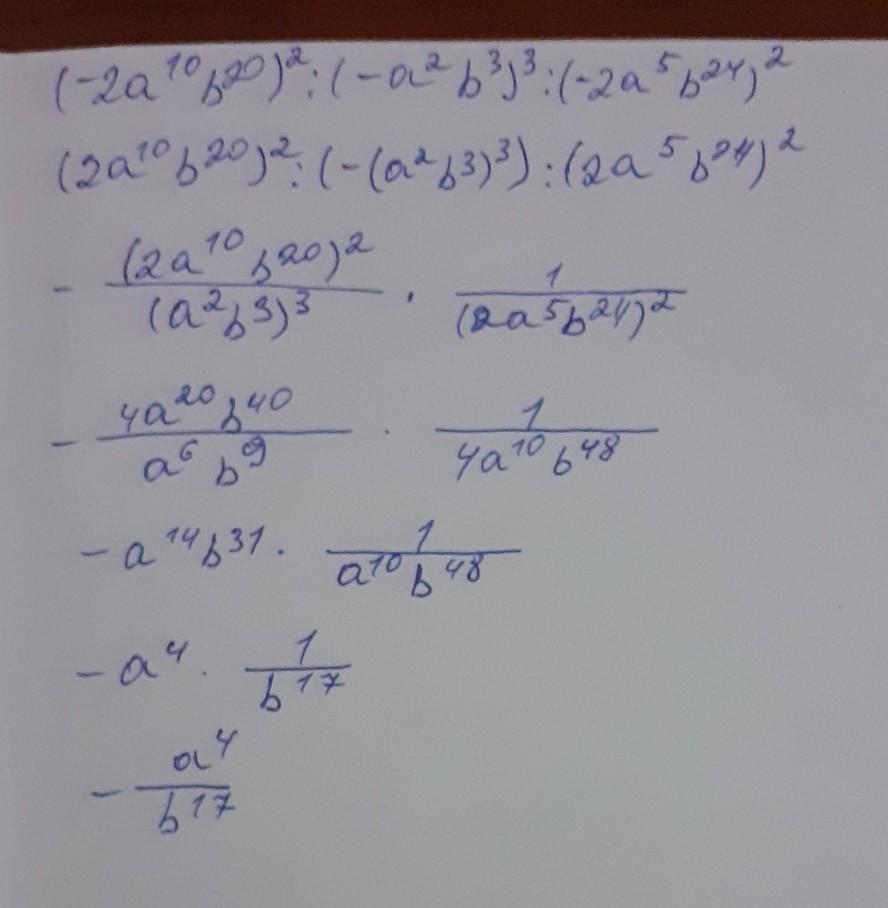 (-2a¹⁰b²⁰)² : (-a²b³)³ : (-2a⁵b²⁴)²
(2a¹⁰b²⁰)² : (-(a²b³)³) : (2a⁵b²⁴)²
- (2a¹⁰b²⁰)² / (a²b³)³ · 1 / (2a⁵b²⁴)²
- 4a²⁰b⁴⁰ / a⁶b⁹ · 1 / 4a¹⁰b⁴⁸
- a¹⁴b³¹ · 1 / a¹⁰b⁴⁸
- a⁴ · 1 / b¹⁷
- a⁴ / b¹⁷